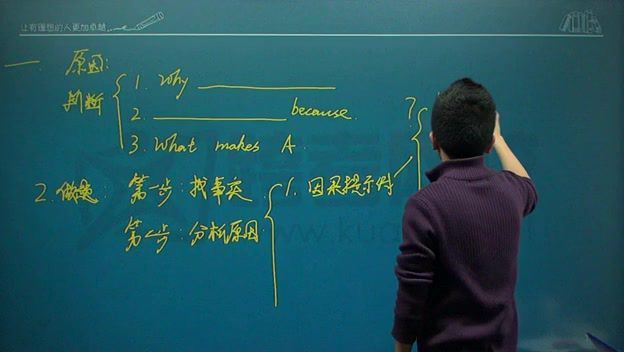 让有理想的人更加卓越
一. 原因:
判断
1. Why
2. because.
3. What makes A.
2. 做题: 第一步: 找事实
1. 因果提示词
?
第二步: 分析原因